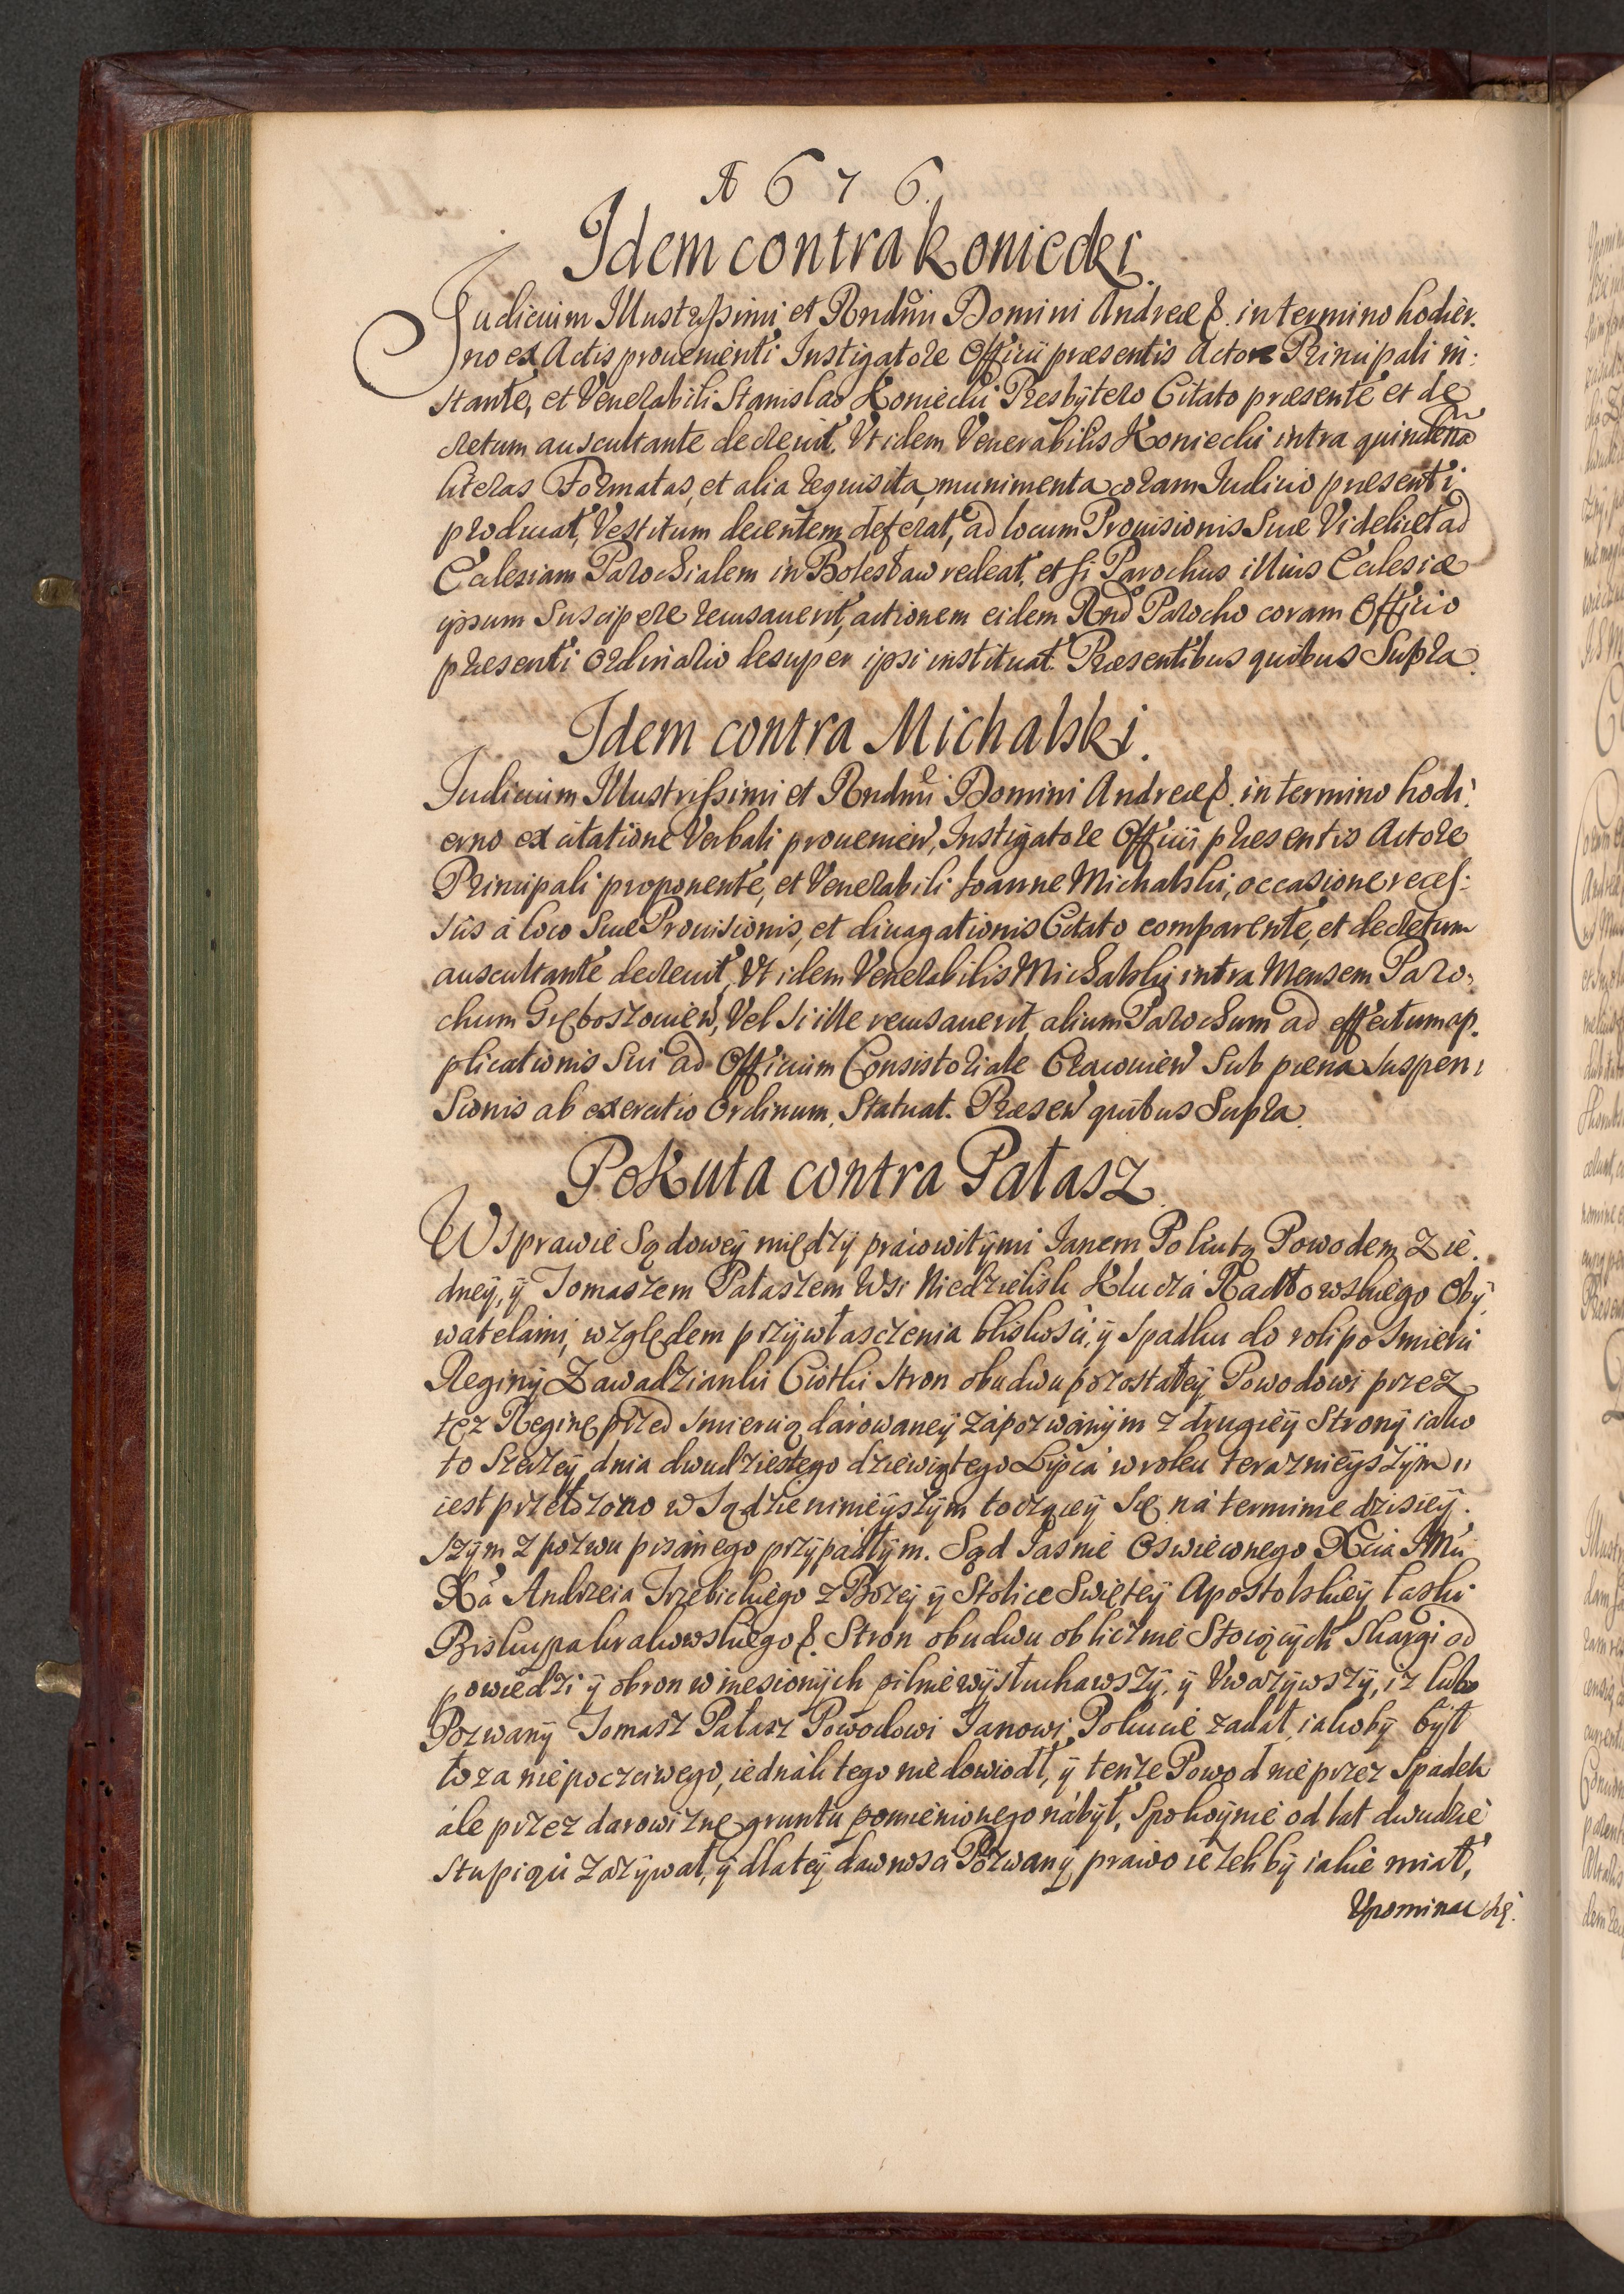 A 6 7 6.
Idem contra Koniecki.
Judicium Illustrissimi et Rndmi Domini Andreæ &. in termino hodier.
no ex Actis prouenienti Instigatore Officii præsentis Actore Principali in:
stante, et Venerabili Stanislao Koniecki Presbytero Citato præsente et de
cretum auscultante decreuit. Vt idem Venerabilis Koniecki intra quindena
literas Formatas, et alia requisita munimenta coram Iudicio præsenti
producat, Vestitum decentem deferat, ad locum Prouisionis Suæ Videlicet ad
Ecclesiam Parochialem in Bolesław redeat, et si Parochus illius Ecclesiæ
ipsum Suscipere recusauerit, actionem eidem Rnd Parocho coram Officio
præsenti Ordinario desuper ipsi instituat. Præsentibus quibus Supra.
Idem contra Michalski.
Iudicium Illustrissimi et Rndmi Domini Andreæ &. in termino hodi:
erno ex citatione Verbali prouenien, Instigatore Officii præsentis Actore
Principali proponente, et Venerabili Joanne Michalski, occasione reces:
sus à loco Suæ Prouisionis, et diuagationis Citato comparente, et decretum
auscultante decreuit, Vt idem Venerabilis Michalski intra Mensem Paro:
chum Gręboszouien, Vel Si ille recusauerit alium Parochum ad effectum ap.
plicationis Sui ad Officium Consistoriale Cracouien Sub pæna Suspen:
Sionis ab exercitio Ordinum, Statuat. Præsen quibus Supra.
Pokuta contra Pałasz
W Sprawie Sądowey między praiowitymi Ianem Pokutą Powodem z ie.
dney, y Tomaszem Pałaszem Wsi Niedzielisk Klucza Radłowskiego Oby
watelami, względem przywłasczenia bliskości, y Spadku do roli po Smierci
Reginy Zawadzianki Ciotki Stron obudwu pozostałey Powodowi przez
tęz Reginę przed Smiercią darowaney zapozwanym z drugiey Strony iako
to Szerzey dnia dwudziestego dziewiątego Lipca w roku terazniejszym
iest przełozono w Sądzie ninieyszym toczącey Się na terminie dzisiey.
szym z pozwu pisanego przypadłym. Sąd Jasnie Oswieconego Xcia JMci
Xa Andrzeia Trzebickiego z Bozey y Stolice Swiętey Apostolskiey łaski
Biskupa krakowskiego &. Stron obudwu oblicznie Stoiących Skargi od
powiedzi y obron wniesionych pilnie wysłuchawszy, y Vwazywszy, iz lubo
Pozwany Tomasz Pałasz Powodowi Janowi Pokucie zadał, iakoby był
łoza niepoczciwego, iednak tego nie dowiodł, y tenze Powod nie przez Spadek
ale przez darowiznę gruntu pomienionego nabył, Spokoynie od lat dwudzie
stu pięci zazywał, y dla tey dawnosci Pozwany prawo iezeliby iakie miał,
Vpominac się.